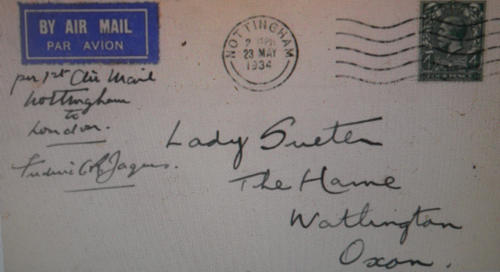 BY AIR MAIL
PAR AVION
NOTTINGHAM
23 MAY
1934
per 1st Air Mail
Nottingham
to
London.
Lady Sueter
The Hame
Watlington
Oxon.